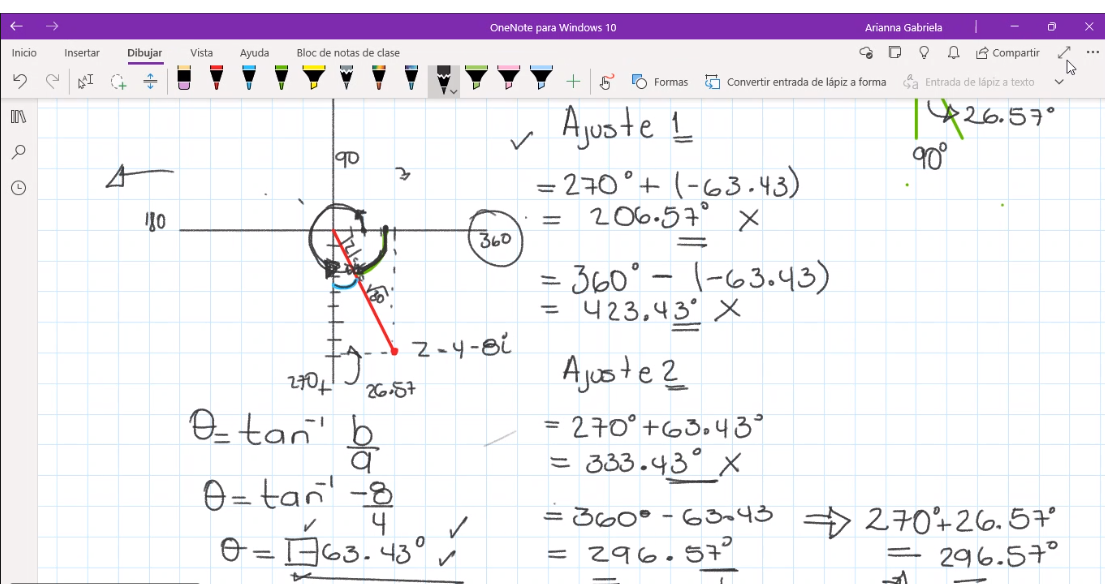 OneNote para Windows 10
Arianna Gabriela
Inicio Insertar Dibujar Vista Ayuda Bloc de notas de clase
Compartir
Formas Convertir entrada de lápiz a forma Entrada de lápiz a texto
26.57°
90°
90
180
360
√80
Z = 4 - 8i
270
26.57
θ = tan⁻¹ b/a
θ = tan⁻¹ -8/4
θ = -63.43°
Ajuste 1
= 270° + (-63.43)
= 206.57° X
= 360° - (-63.43)
= 423.43° X
Ajuste 2
= 270° + 63.43°
= 333.43° X
= 360° - 63.43
= 296.57°
⇒ 270° + 26.57°
= 296.57°